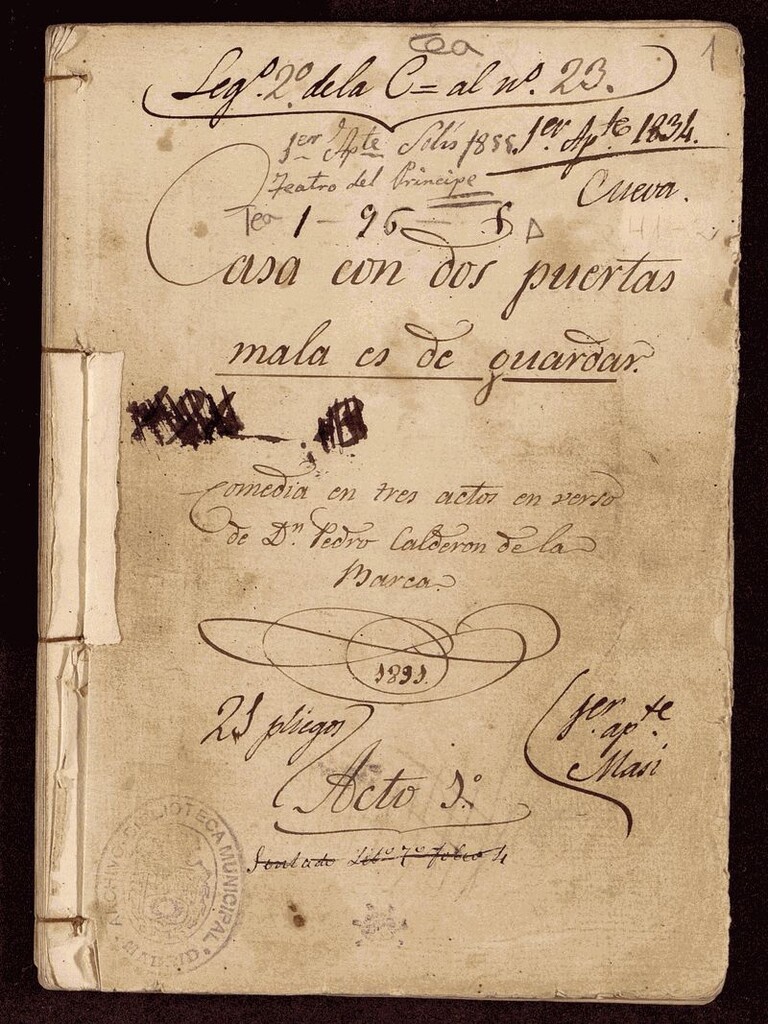 Tea
1
Leg.º 2.º de la C= al nº. 23.
1er Apte Solís 1855.
1er Apte 1834.
Teatro del Príncipe
Cueva.
Tea 1-96-
Casa con dos puertas
mala es de guardar.
Comedia en tres actos en verso
de Dn. Pedro Calderon de la
Barca.
1831.
21 pliegos
1er
apte
Masi
Acto 1º
folio 4
ARCHIVO BIBLIOTECA MUNICIPAL
MADRID